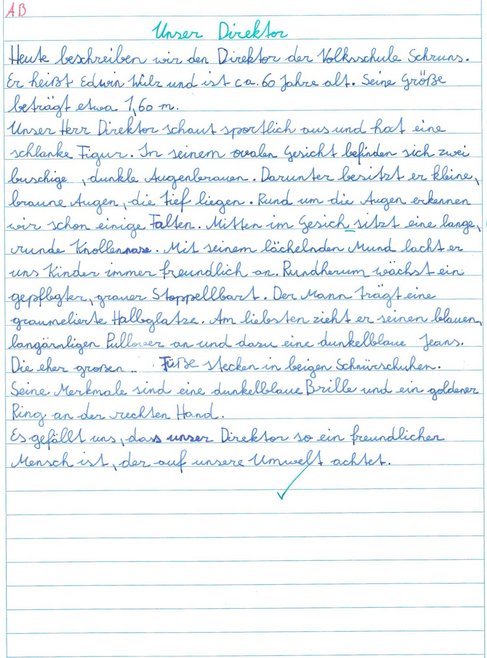 AB
Unser Direktor
Heute beschreiben wir den Direktor der Volksschule Schruns.
Er heißt Edwin Wilz und ist ca. 60 Jahre alt. Seine Größe
beträgt etwa 1,60 m.
Unser Herr Direktor schaut sportlich aus und hat eine
schlanke Figur. In seinem ovalen Gesicht befinden sich zwei
buschige, dunkle Augenbrauen. Darunter besitzt er kleine,
braune Augen, die tief liegen. Rund um die Augen erkennen
wir schon einige Falten. Mitten im Gesich sitzt eine lange,
runde Knollennase. Mit seinem lächelnden Mund lacht er
uns Kinder immer freundlich an. Rundherum wächst ein
gepflegter, grauer Stoppellbart. Der Mann trägt eine
graumelierte Halbglatze. Am liebsten zieht er seinen blauen,
langärmligen Pullover an und dazu eine dunkelblaue Jeans.
Die eher großen Füße stecken in beigen Schnürschuhen.
Seine Merkmale sind eine dunkelblaue Brille und ein goldener
Ring an der rechten Hand.
Es gefällt uns, dass unser Direktor so ein freundlicher
Mensch ist, der auf unsere Umwelt achtet.